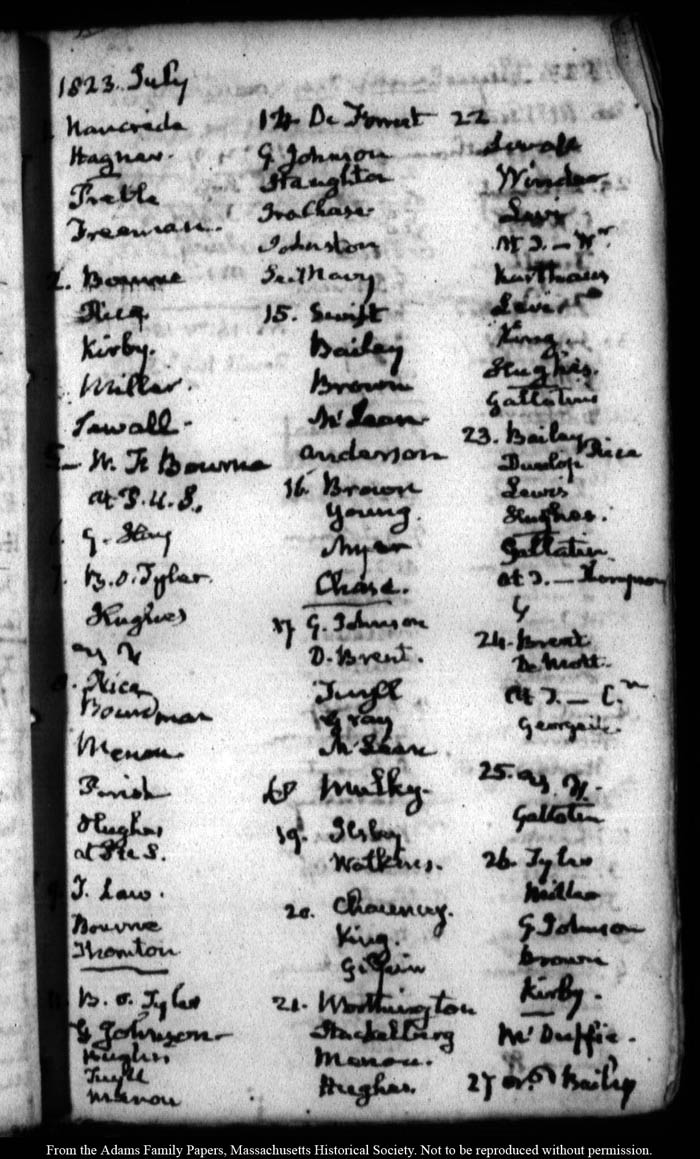 1823. July
Nancrede
Hagner.
Preble
Freeman.
2. Bourne
Rice
Kirby.
Miller.
Sewall.
5. W. F. Bourne
at P. U. S.
G.
7. B. O. Tyler.
Hughes
8. Rice
Boardman
Menou
Parish
Hughes
at
9. T. Law.
Bourne
Thornton
B. O. Tyler
G Johnson
Hughes
Tuyll
Menou
14 De Forrest
G Johnson
Staughton
Ira Chase
Johnston
Sec Navy
15. Swift
Bailey
Brown
McLean
Anderson
16. Brown
Young.
Chase.
17 G. Johnson
D. Brent.
Tuyll
Gray
McLean
18 Mulky.
19. Ilsby
Watkins.
20. Chauncey.
King.
Gilpin
21. Worthington
Stackelberg
Menou.
Hughes.
22
Sewall
Winder
Levy
At T. —
Karthaus
King.
Hughes.
Gallatin
23. Bailey Rice
Dunlop
Lewis
Hughes.
Gallatin.
at T. — Thompson
G
24. Brent
De Mott.
At T. — C.n
George
25.
Gallatin
26. Tyler
Miller
G Johnson
Brown
Kirby.
McDuffie.
27 Bailey
From the Adams Family Papers, Massachusetts Historical Society. Not to be reproduced without permission.